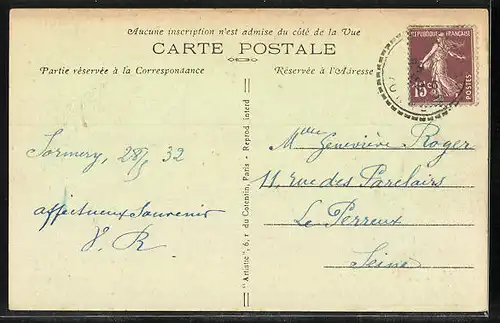 Aucune inscription n'est admise du côté de la Vue
CARTE POSTALE
Partie réservée à la Correspondance
Réservée à l'Adresse
RÉPUBLIQUE FRANÇAISE
15c
POSTES
Sormery, 28/5 32
affectueux souvenir
V. R
Mlle Geneviève Roger
11, rue des Parclairs
Le Perreux
Seine
"Artistic", 6, r du Cotentin, Paris - Reprod interd